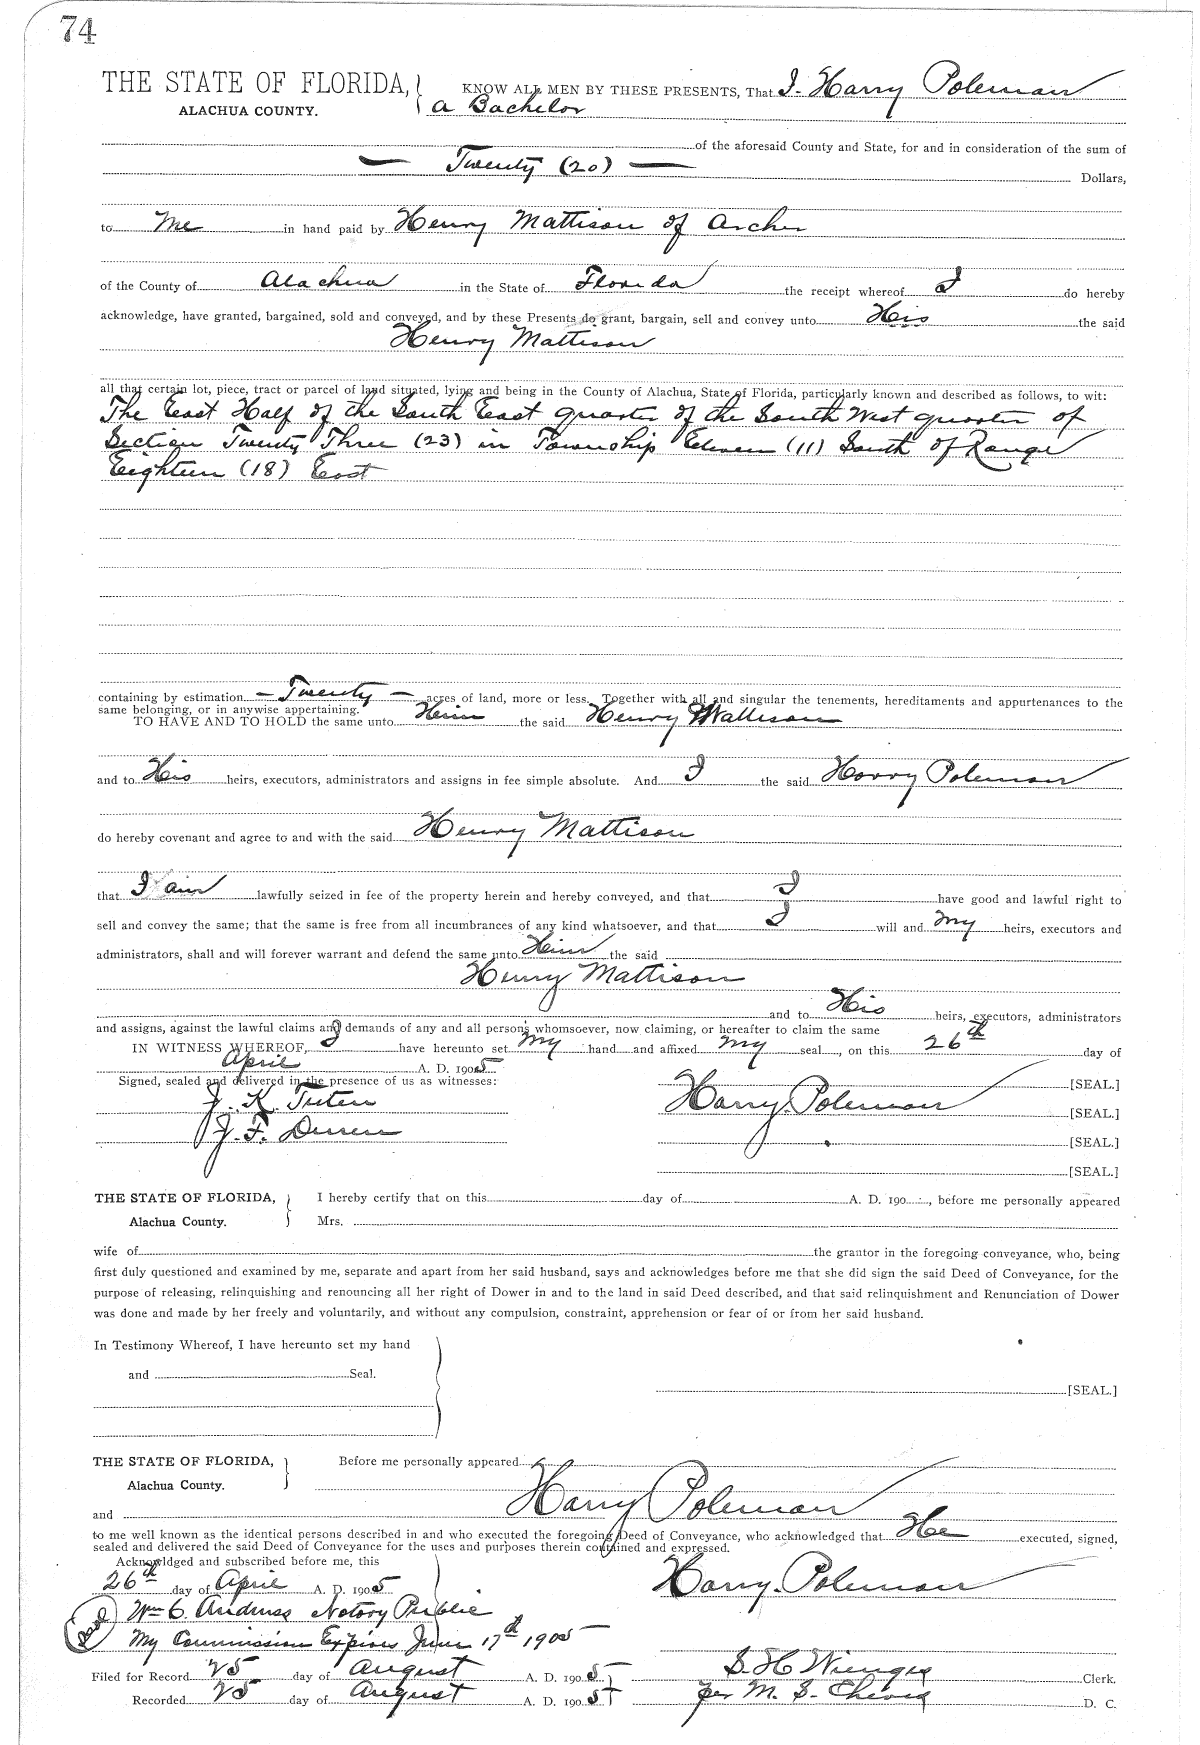 74
THE STATE OF FLORIDA, KNOW ALL MEN BY THESE PRESENTS, That I- Harry Poleman
ALACHUA COUNTY. a Bachelor
of the aforesaid County and State, for and in consideration of the sum of
— Twenty (20) — Dollars,
to me in hand paid by Henry Mattison of Archer
of the County of Alachua in the State of Florida the receipt whereof I do hereby
acknowledge, have granted, bargained, sold and conveyed, and by these Presents do grant, bargain, sell and convey unto His the said
Henry Mattison
all that certain lot, piece, tract or parcel of land situated, lying and being in the County of Alachua, State of Florida, particularly known and described as follows, to wit:
The East Half of the South East quarter of the South West quarter of
Section Twenty Three (23) in Township Eleven (11) South of Range
Eighteen (18) East
containing by estimation — Twenty — acres of land, more or less. Together with all and singular the tenements, hereditaments and appurtenances to the
same belonging, or in anywise appertaining.
TO HAVE AND TO HOLD the same unto Him the said Henry Mattison
and to His heirs, executors, administrators and assigns in fee simple absolute. And I the said Harry Poleman
do hereby covenant and agree to and with the said Henry Mattison
that I am lawfully seized in fee of the property herein and hereby conveyed, and that I have good and lawful right to
sell and convey the same; that the same is free from all incumbrances of any kind whatsoever, and that I will and my heirs, executors and
administrators, shall and will forever warrant and defend the same unto Him the said
Henry Mattison
and to His heirs, executors, administrators
and assigns, against the lawful claims and demands of any and all persons whomsoever, now claiming, or hereafter to claim the same
IN WITNESS WHEREOF, I have hereunto set my hand and affixed my seal, on this 26th day of
April A. D. 1905
Signed, sealed and delivered in the presence of us as witnesses: [SEAL.]
J. K. Tuten Harry Poleman [SEAL.]
J. F. [SEAL.]
[SEAL.]
THE STATE OF FLORIDA, I hereby certify that on this day of A. D. 190, before me personally appeared
Alachua County. Mrs.
wife of the grantor in the foregoing conveyance, who, being
first duly questioned and examined by me, separate and apart from her said husband, says and acknowledges before me that she did sign the said Deed of Conveyance, for the
purpose of releasing, relinquishing and renouncing all her right of Dower in and to the land in said Deed described, and that said relinquishment and Renunciation of Dower
was done and made by her freely and voluntarily, and without any compulsion, constraint, apprehension or fear of or from her said husband.
In Testimony Whereof, I have hereunto set my hand
and Seal.
[SEAL.]
THE STATE OF FLORIDA, Before me personally appeared
Alachua County.
Harry Poleman
and
to me well known as the identical persons described in and who executed the foregoing Deed of Conveyance, who acknowledged that He executed, signed,
sealed and delivered the said Deed of Conveyance for the uses and purposes therein contained and expressed.
Acknowledged and subscribed before me, this
26th day of April A. D. 1905 Harry Poleman
Seal Wm C. Andruss Notary Public
My Commission Expires June 17th 1905
Filed for Record 25 day of August A. D. 1905 S. H. Wienges Clerk.
Recorded 25 day of August A. D. 1905 per M. S. Cheves D. C.